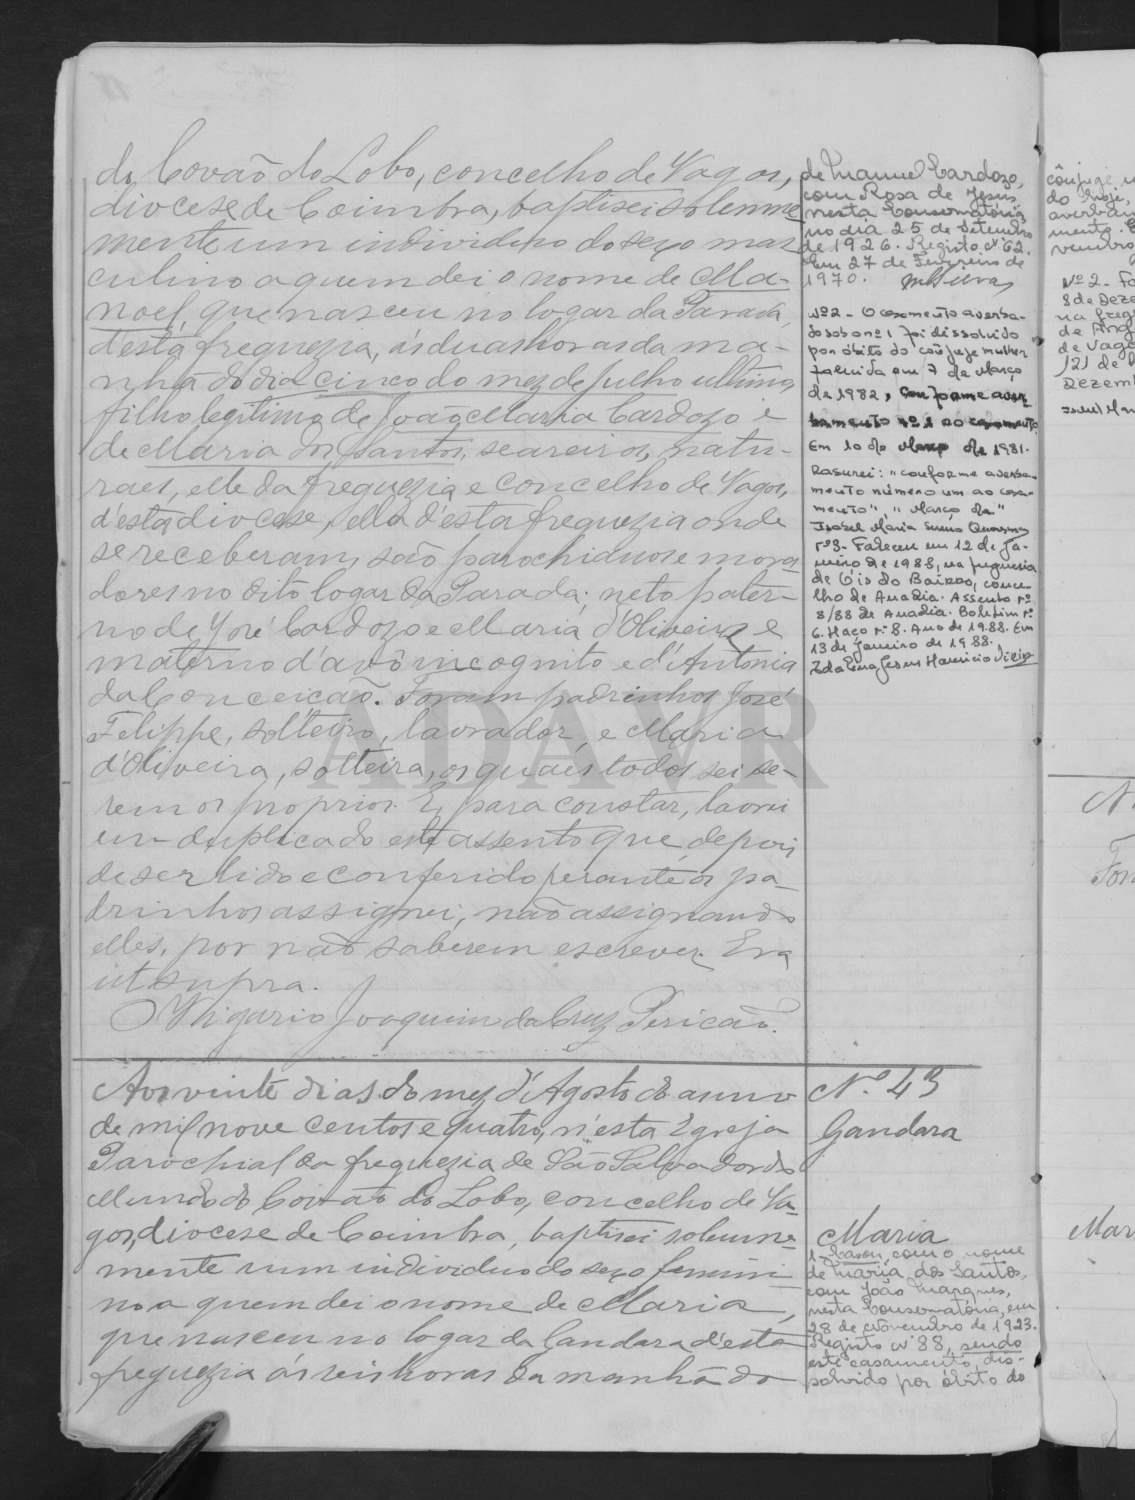 do Covão do Lobo, concelho de Vagos,
diocese de Coimbra, baptisei solemne
mente um individuo do sexo mas
culino a quem dei o nome de Ma-
noel, que nasceu no logar da Parada,
d'esta freguezia, ás duas horas da ma-
nhã do dia cinco do mez de Julho ultimo,
filho legitimo de João Maria Cardozo e
de Maria dos Santos, seareiros, natu-
raes, elle da freguezia e concelho de Vagos,
d'esta diocese, ella d'esta freguezia onde
se receberam, são parochianos e mora
dores no dito logar da Parada; neto pater-
no de José Cardozo e Maria d'Oliveira e
materno d'avô incognito e d'Antonia
da Conceicão. Foram padrinhos José
Felippe, solteiro, lavrador, e Maria
d'Oliveira, solteira, os quaes todos sei se-
rem os proprios. E, para constar, lavrei
em duplicado este assento que, depois
de ser lido e conferido perante os pa-
drinhos assignei, não assignando
elles, por não saberem escrever. Era
ut supra.
O Vigario Joaquim da Cruz Pericão.
de Manuel Cardozo,
com Rosa de Jesus
nesta Conservatória,
no dia 25 de Setembro
de 1926. Registo Nº 62.
Em 27 de Fevereiro de
1970.
Nº2 - O casamento averba-
do sob o nº 1 foi dissolvido
por óbito do cônjuge mulher
falecida em 7 de Março
de 1982, conforme aver
bamento nº 1 ao casamento.
Em 10 de Março de 1981.
Rasurei: "conforme averba-
mento número um ao casa-
mento", "Março de"
Isabel Maria
nº3 - Faleceu em 12 de Ja-
neiro de 1988, na freguesia
de Óis do Bairro, conce-
lho de Anadia. Assento nº
8/88 de Anadia. Boletim nº
6. Maço nº 8. Ano de 1988. Em
13 de Janeiro de 1988.
Aos vinte dias do mez d'Agosto do anno
de mil nove centos e quatro, n'esta Egreja
Parochial da freguezia de São Salvador do
Mundo do Covão do Lobo, concelho de Va
gos, diocese de Coimbra, baptisei solemne
mente um individuo do sexo femini
no a quem dei o nome de Maria,
que nasceu no logar da Gandara d'esta
freguezia ás seis horas da manhã do
Nº 43
Gandara
Maria
1 - Casou, com o nome
de Maria dos Santos,
com João Marques,
nesta Conservatória, em
28 de Novembro de 1923.
Registo Nº 88, sendo
este casamento, dis-
solvido por óbito do
cônjuge
do
mento
Nº 2 -
de
de Vagos
ADAVR